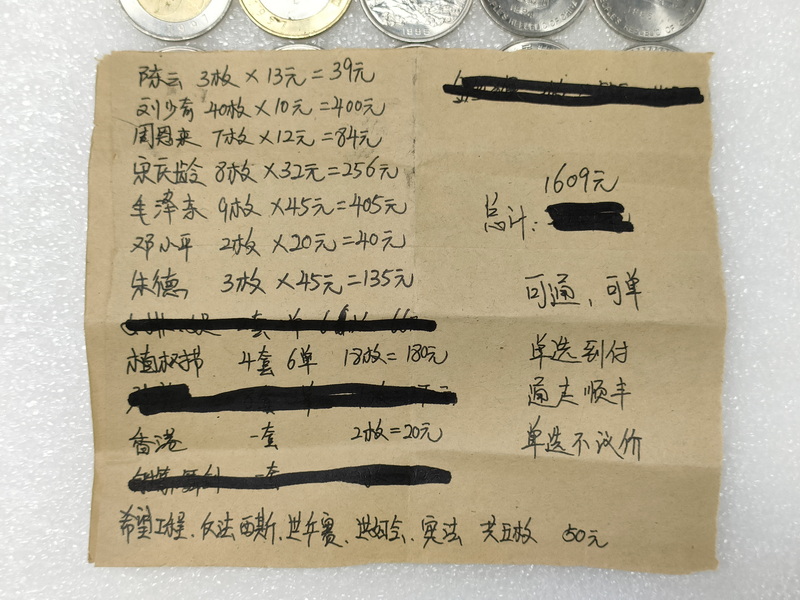 陈云 3枚×13元=39元
刘少奇 40枚×10元=400元
周恩来 7枚×12元=84元
宋庆龄 8枚×32元=256元
毛泽东 9枚×45元=405元
邓小平 2枚×20元=40元
朱德 3枚×45元=135元
植树节 4套6单 18枚=180元
香港 一套 2枚=20元
希望工程、反法西斯、世乒赛、世妇会、宪法 共五枚 50元
1609元
总计:
可通，可单
单选到付
通走顺丰
单选不议价